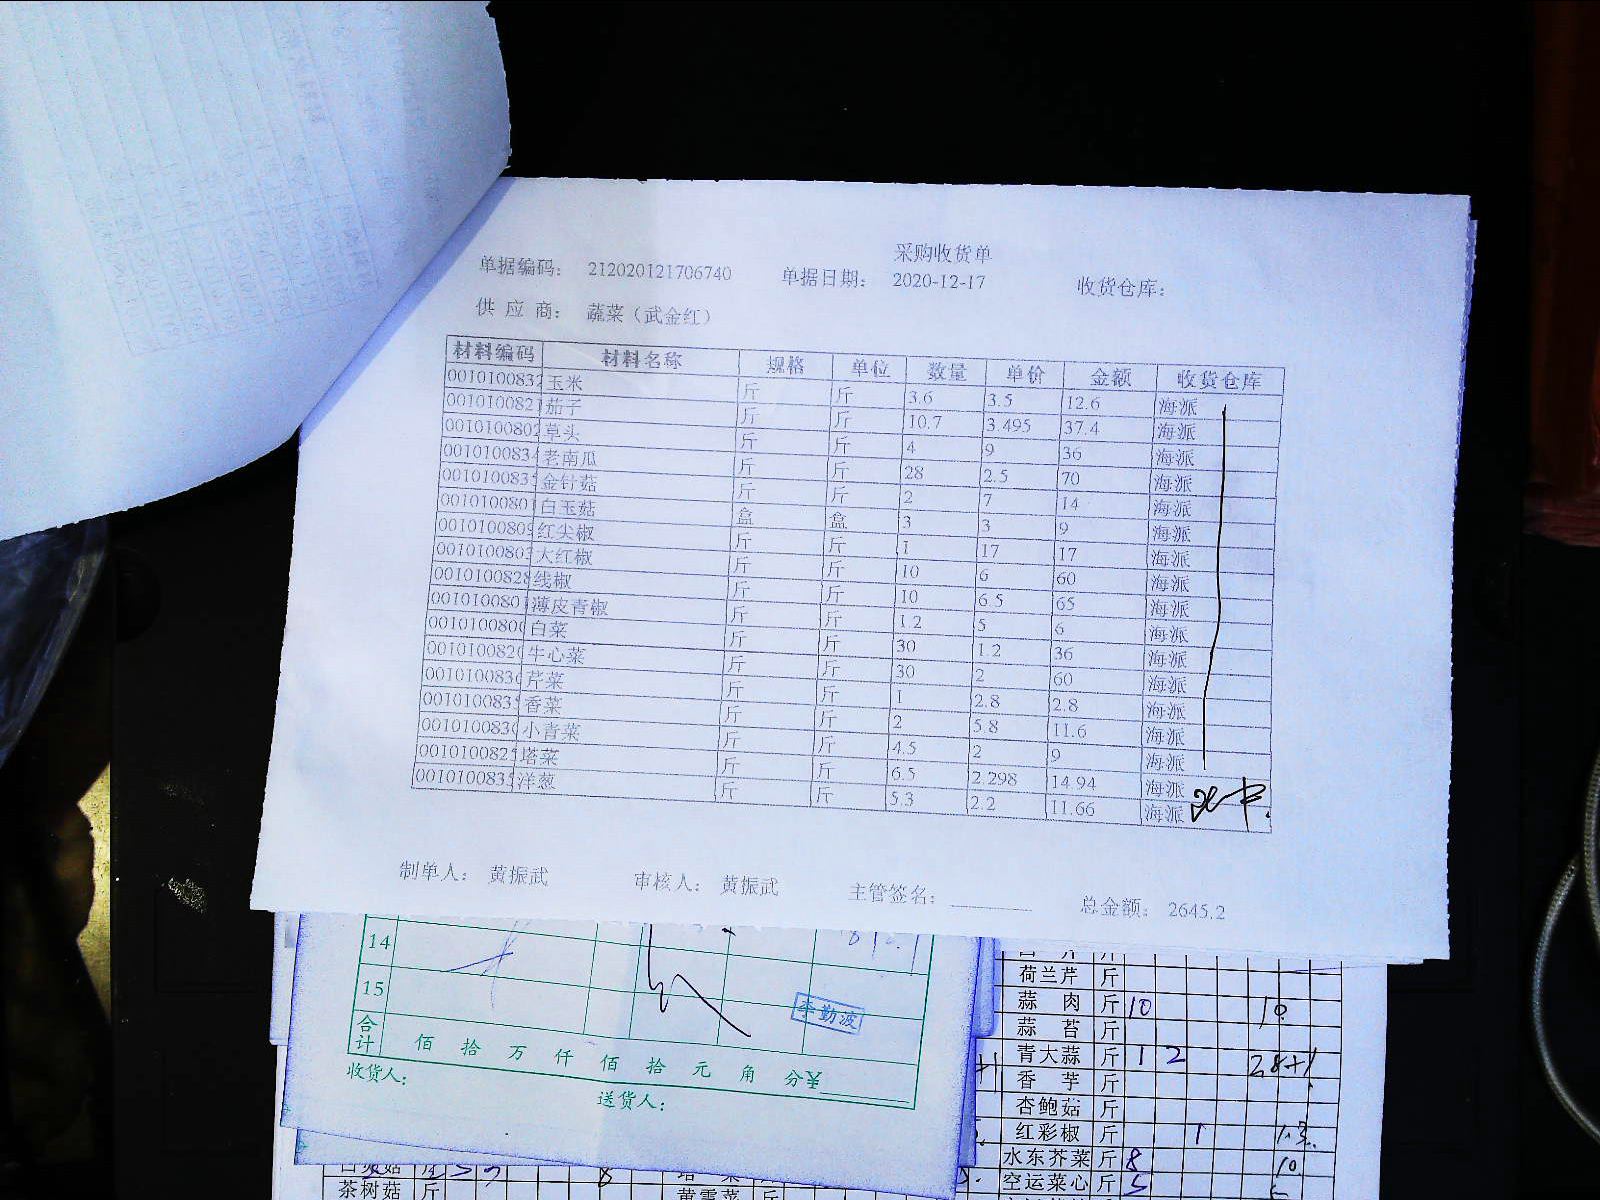 采购收货单
单据编码： 212020121706740 单据日期： 2020-12-17 收货仓库：
供 应 商： 蔬菜（武金红）
材料编码 材料名称 规格 单位 数量 单价 金额 收货仓库
0010100832 玉米 斤 斤 3.6 3.5 12.6 海派
0010100821 茄子 斤 斤 10.7 3.495 37.4 海派
0010100802 草头 斤 斤 4 9 36 海派
001010083 老南瓜 斤 斤 28 2.5 70 海派
001010083 金针菇 斤 斤 2 7 14 海派
001010080 白玉菇 盒 盒 3 3 9 海派
001010080 红尖椒 斤 斤 1 17 17 海派
001010080 大红椒 斤 斤 10 6 60 海派
001010082 线椒 斤 斤 10 6.5 65 海派
001010080 薄皮青椒 斤 斤 1.2 5 6 海派
001010080 白菜 斤 斤 30 1.2 36 海派
001010082 牛心菜 斤 斤 30 2 60 海派
001010083 芹菜 斤 斤 1 2.8 2.8 海派
001010083 香菜 斤 斤 2 5.8 11.6 海派
001010083 小青菜 斤 斤 4.5 2 9 海派
001010082 塔菜 斤 斤 6.5 2.298 14.94 海派
001010083 洋葱 斤 斤 5.3 2.2 11.66 海派
制单人： 黄振武 审核人： 黄振武 主管签名： 总金额： 2645.2
14
15
李勤波
合计 佰 拾 万 仟 佰 拾 元 角 分¥
收货人： 送货人：
荷兰芹 斤
蒜 肉 斤 10 10
蒜 苔 斤
青大蒜 斤 1 2 28+1
香 芋 斤
杏鲍菇 斤
红彩椒 斤 1
水东芥菜 斤 8 10
空运菜心 斤 5
茶树菇 斤
黄雪菜 斤